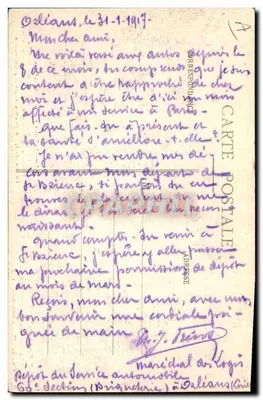 Orléans, le 31-1-1917.
Mon cher ami,
Me voilà versé aux autos depuis le
8 de ce mois, tu comprends que je suis
content d'être rapproché de chez
moi et j'espère être d'ici un mois
affecté à un service à Paris.
Que fais-tu à présent et
ta santé s'améliore-t-elle?
Je n'ai pu rendre mes
avant mon départ de
St Brieuc, si
me le dirais
naissant.
Quand comptes-tu venir à
St Brieuc, j'espère y aller passer
ma prochaine permission de dépôt
au mois de mars.
Reçois, mon cher ami, avec mon
bon souvenir une cordiale poi-
gnée de main
Maréchal des Logis
Dépôt du Service automobile
Section (Briqueterie) à Orléans
CARTE POSTALE
CORRESPONDANCE
ADRESSE
A